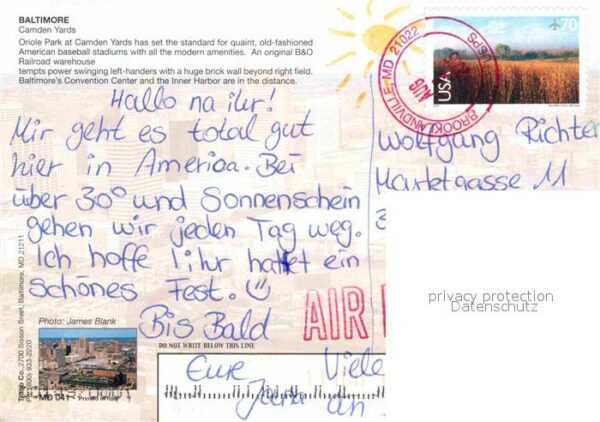 BALTIMORE
Camden Yards
Oriole Park at Camden Yards has set the standard for quaint, old-fashioned
American baseball stadiums with all the modern amenities. An original B&O
Railroad warehouse
tempts power swinging left-handers with a huge brick wall beyond right field.
Baltimore's Convention Center and the Inner Harbor are in the distance.
Hallo na ihr!
Mir geht es total gut
hier in America. Bei
über 30° und Sonnenschein
gehen wir jeden Tag weg.
Ich hoffe ihr hattet ein
schönes Fest.
Bis Bald
Eure
Viele
an
BROOKLANDVILLE, MD 21022
AUG
USPS
USA
70
Wolfgang Richter
Marktgasse 11
3
AIR
privacy protection
Datenschutz
Photo: James Blank
DO NOT WRITE BELOW THIS LINE
Co., 2700 Sisson Street, Baltimore, MD 21211
(800) 933-2220
MD 041
Printed in Italy